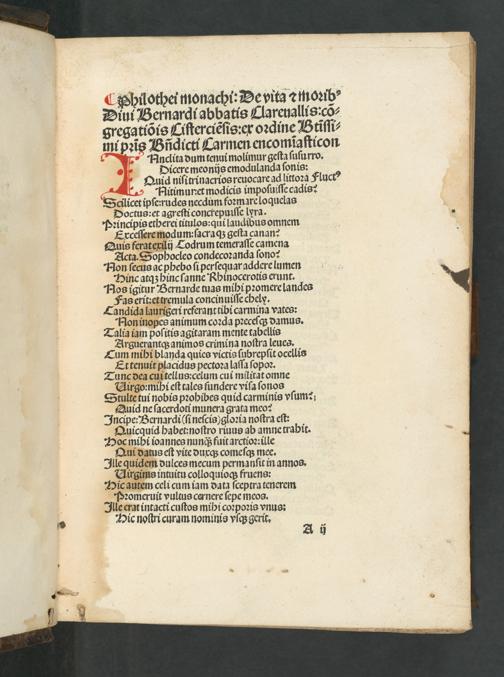 ¶Philothei monachi: De vita ⁊ moribꝰ
Diui Bernardi abbatis Clareuallis: cō-
gregatiōis Cisterciēsis: ex ordine Btissi-
mi pris Bñdicti Carmen encomiasticon
INclita dum tenui molimur gesta susurro.
Dicere meonijs emodulanda sonis:
Quid nisi trinacrios reuocare ad littora fluctꝰ
Nitimur: et modicis imposuisse cadis?
Scilicet ipse: rudes necdum formare loquelas
Doctus: et agresti concrepuisse lyra.
Principis etherei titulos: qui laudibus omnem
Excessere modum: sacraqꝫ gesta canan?
Quis ferat exilij Codrum temerasse camena
Acta. Sophocleo condecoranda sono?
Non secus ac phebo si persequar addere lumen
Hinc atqꝫ hinc sanne Rhinocerotis erunt.
Nos igitur Bernarde tuas mihi promere laudes
Fas erit: et tremula concinuisse chely.
Candida laurigeri referant tibi carmina vates:
Non inopes animum corda precesqꝫ damus.
Talia iam positis agitaram mente tabellis
Arguerantqꝫ animos crimina nostra leues.
Cum mihi blanda quies victis subrepsit ocellis
Et tenuit placidus pectora lassa sopor.
Tunc dea cui tellus: celum cui militat omne
Uirgo: mihi est tales fundere visa sonos
Stulte tui nobis prohibes quid carminis vsum?
Quid ne sacerdoti munera grata meo?
Incipe: Bernardi (si nescis) gloria nostra est:
Quicquid habet: nostro riuus ab amne trahit.
Hoc mihi ioannes nunqꝫ fuit arctior: ille
Qui datus est vite duxqꝫ comesqꝫ mee.
Ille quidem dulces mecum permansit in annos.
Uirginis intuitu colloquioqꝫ fruens:
Hic autem celi cum iam data sceptra tenerem
Promeruit vultus cernere sepe meos.
Ille erat intacti custos mihi corporis vnus:
Hic nostri curam nominis vsqꝫ gerit.
A ij